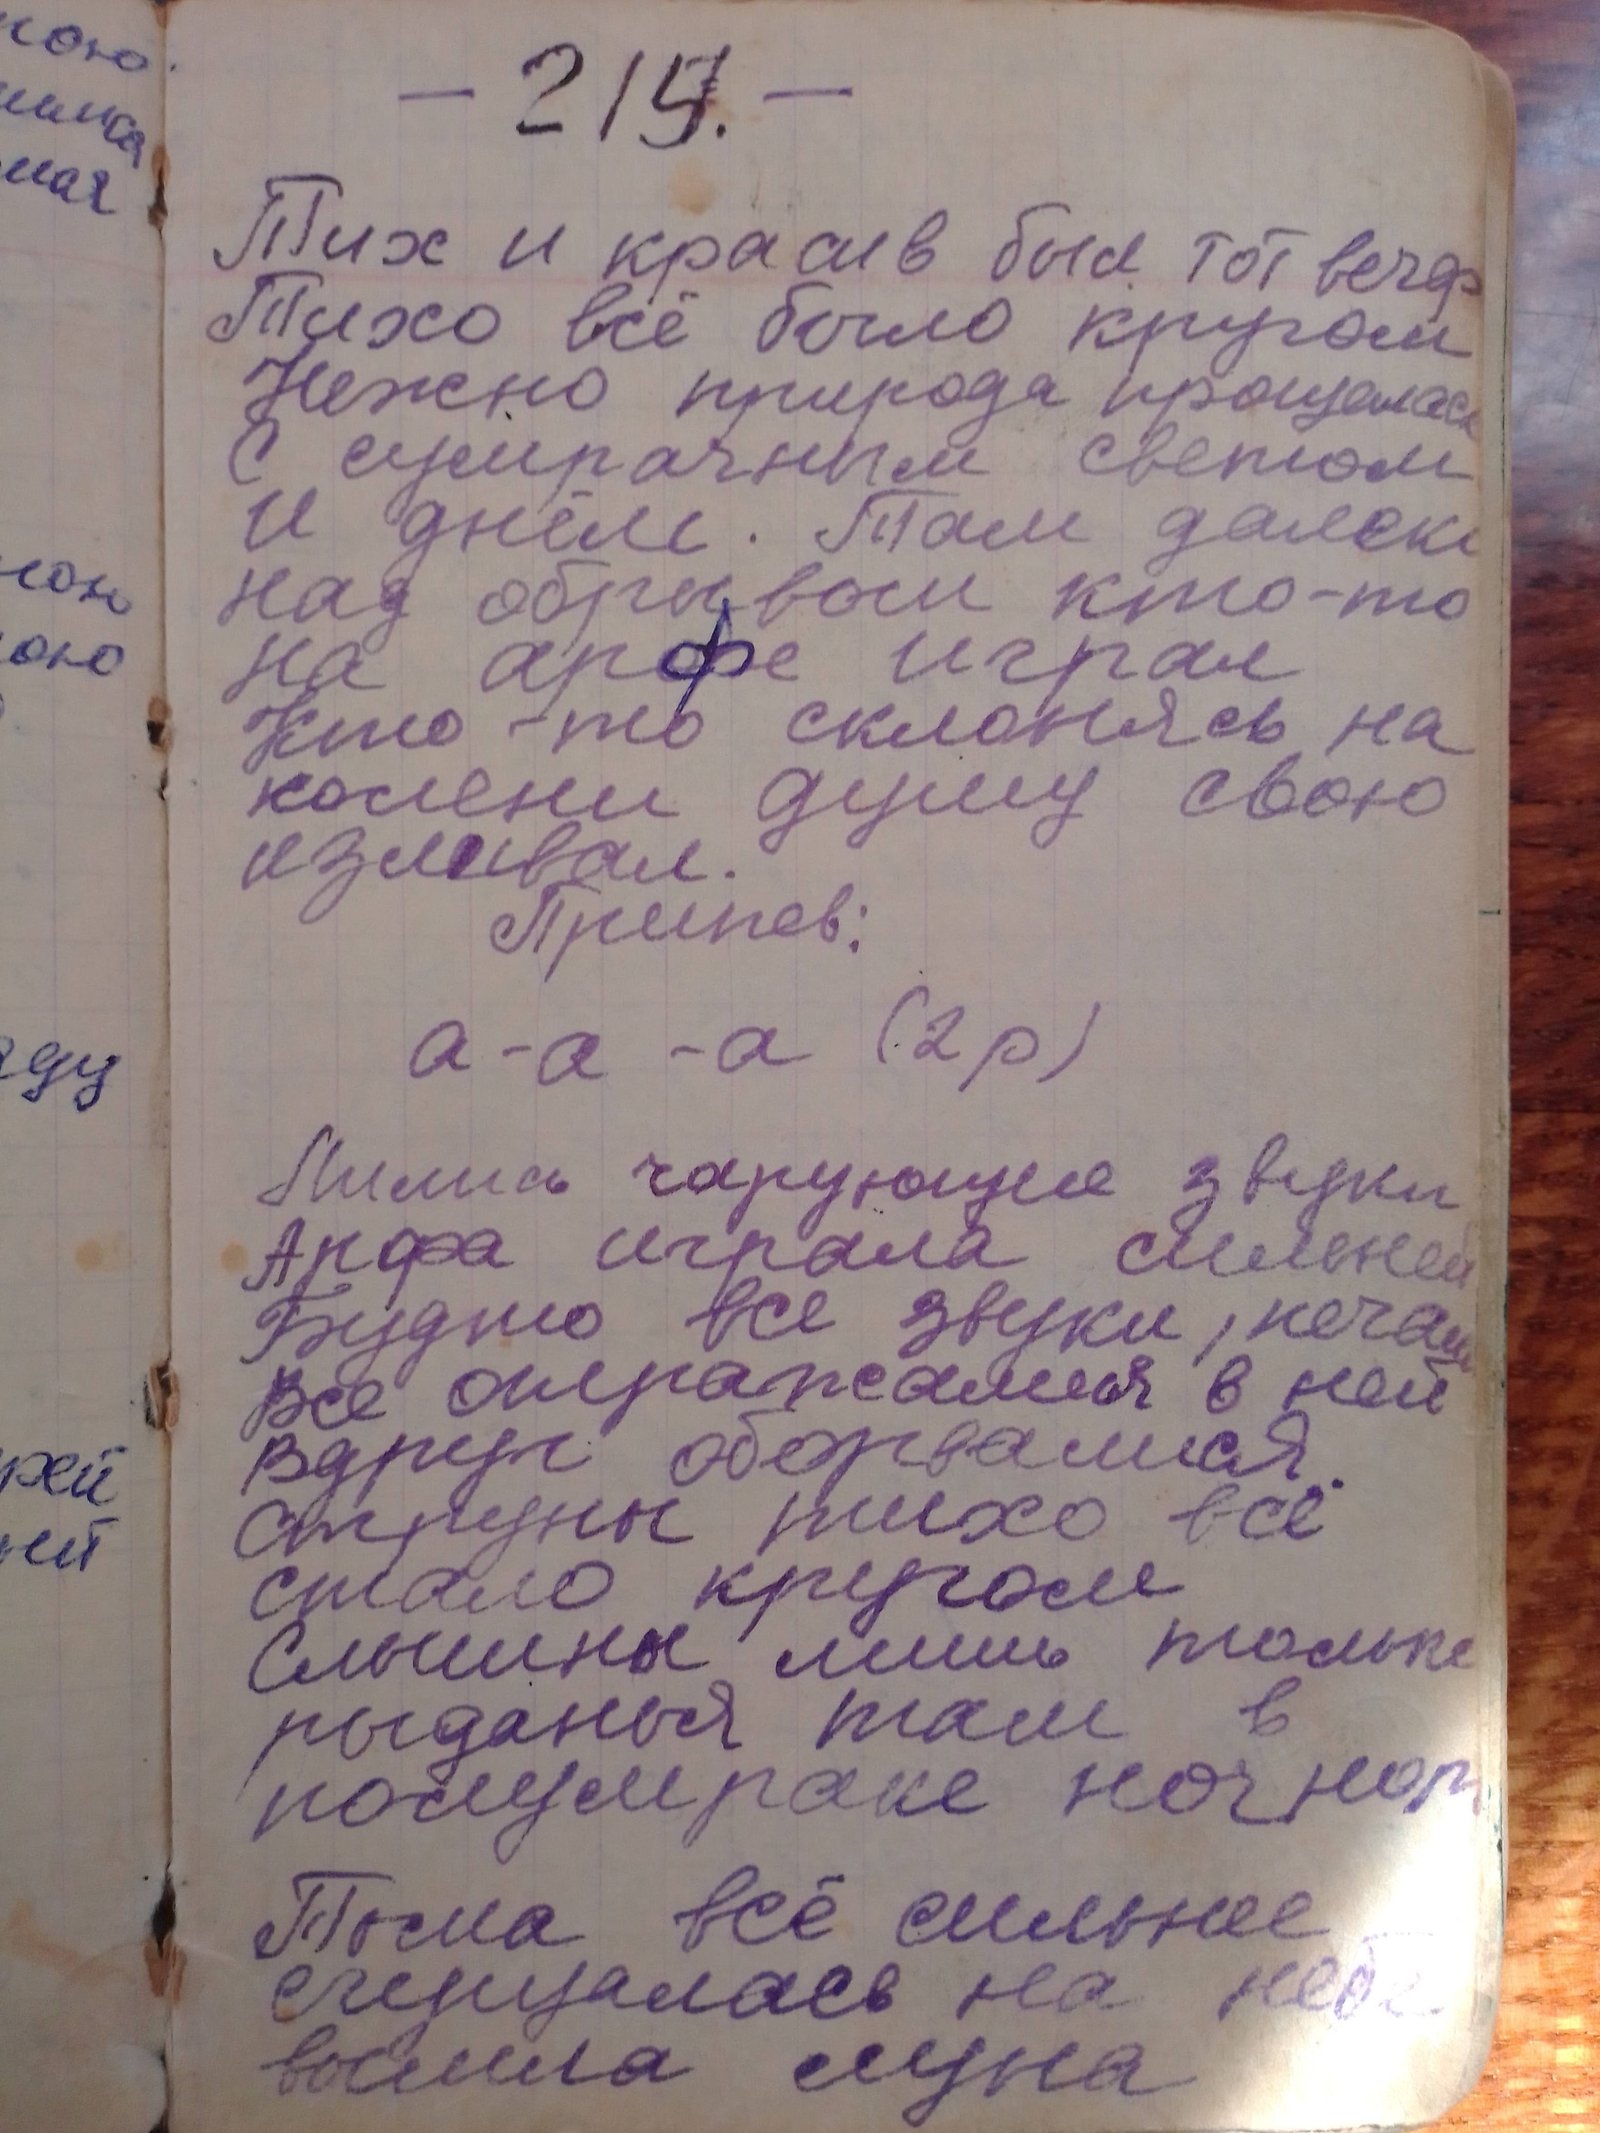 — 217. —
Тих и красив был тот вечер
Тихо всё было кругом
Нежно природа прощалась
С сумрачным светом
И днём. Там далеки
над обрывом кто-то
на арфе играл
Кто-то склонясь на
колени думу свою
изливал.
Припев:
а-а-а (2р)
Лились чарующие звуки
Арфа играла сильней
Будто все звуки, печали
Все отражались в ней
Вдруг оборвались.
Струны тихо всё
стало кругом
Слышны лишь только
рыданья там в
полумраке ночном
Тьма всё сильнее
сгущалась на небе
вышла луна
ною.
ною
ду
рей
ней